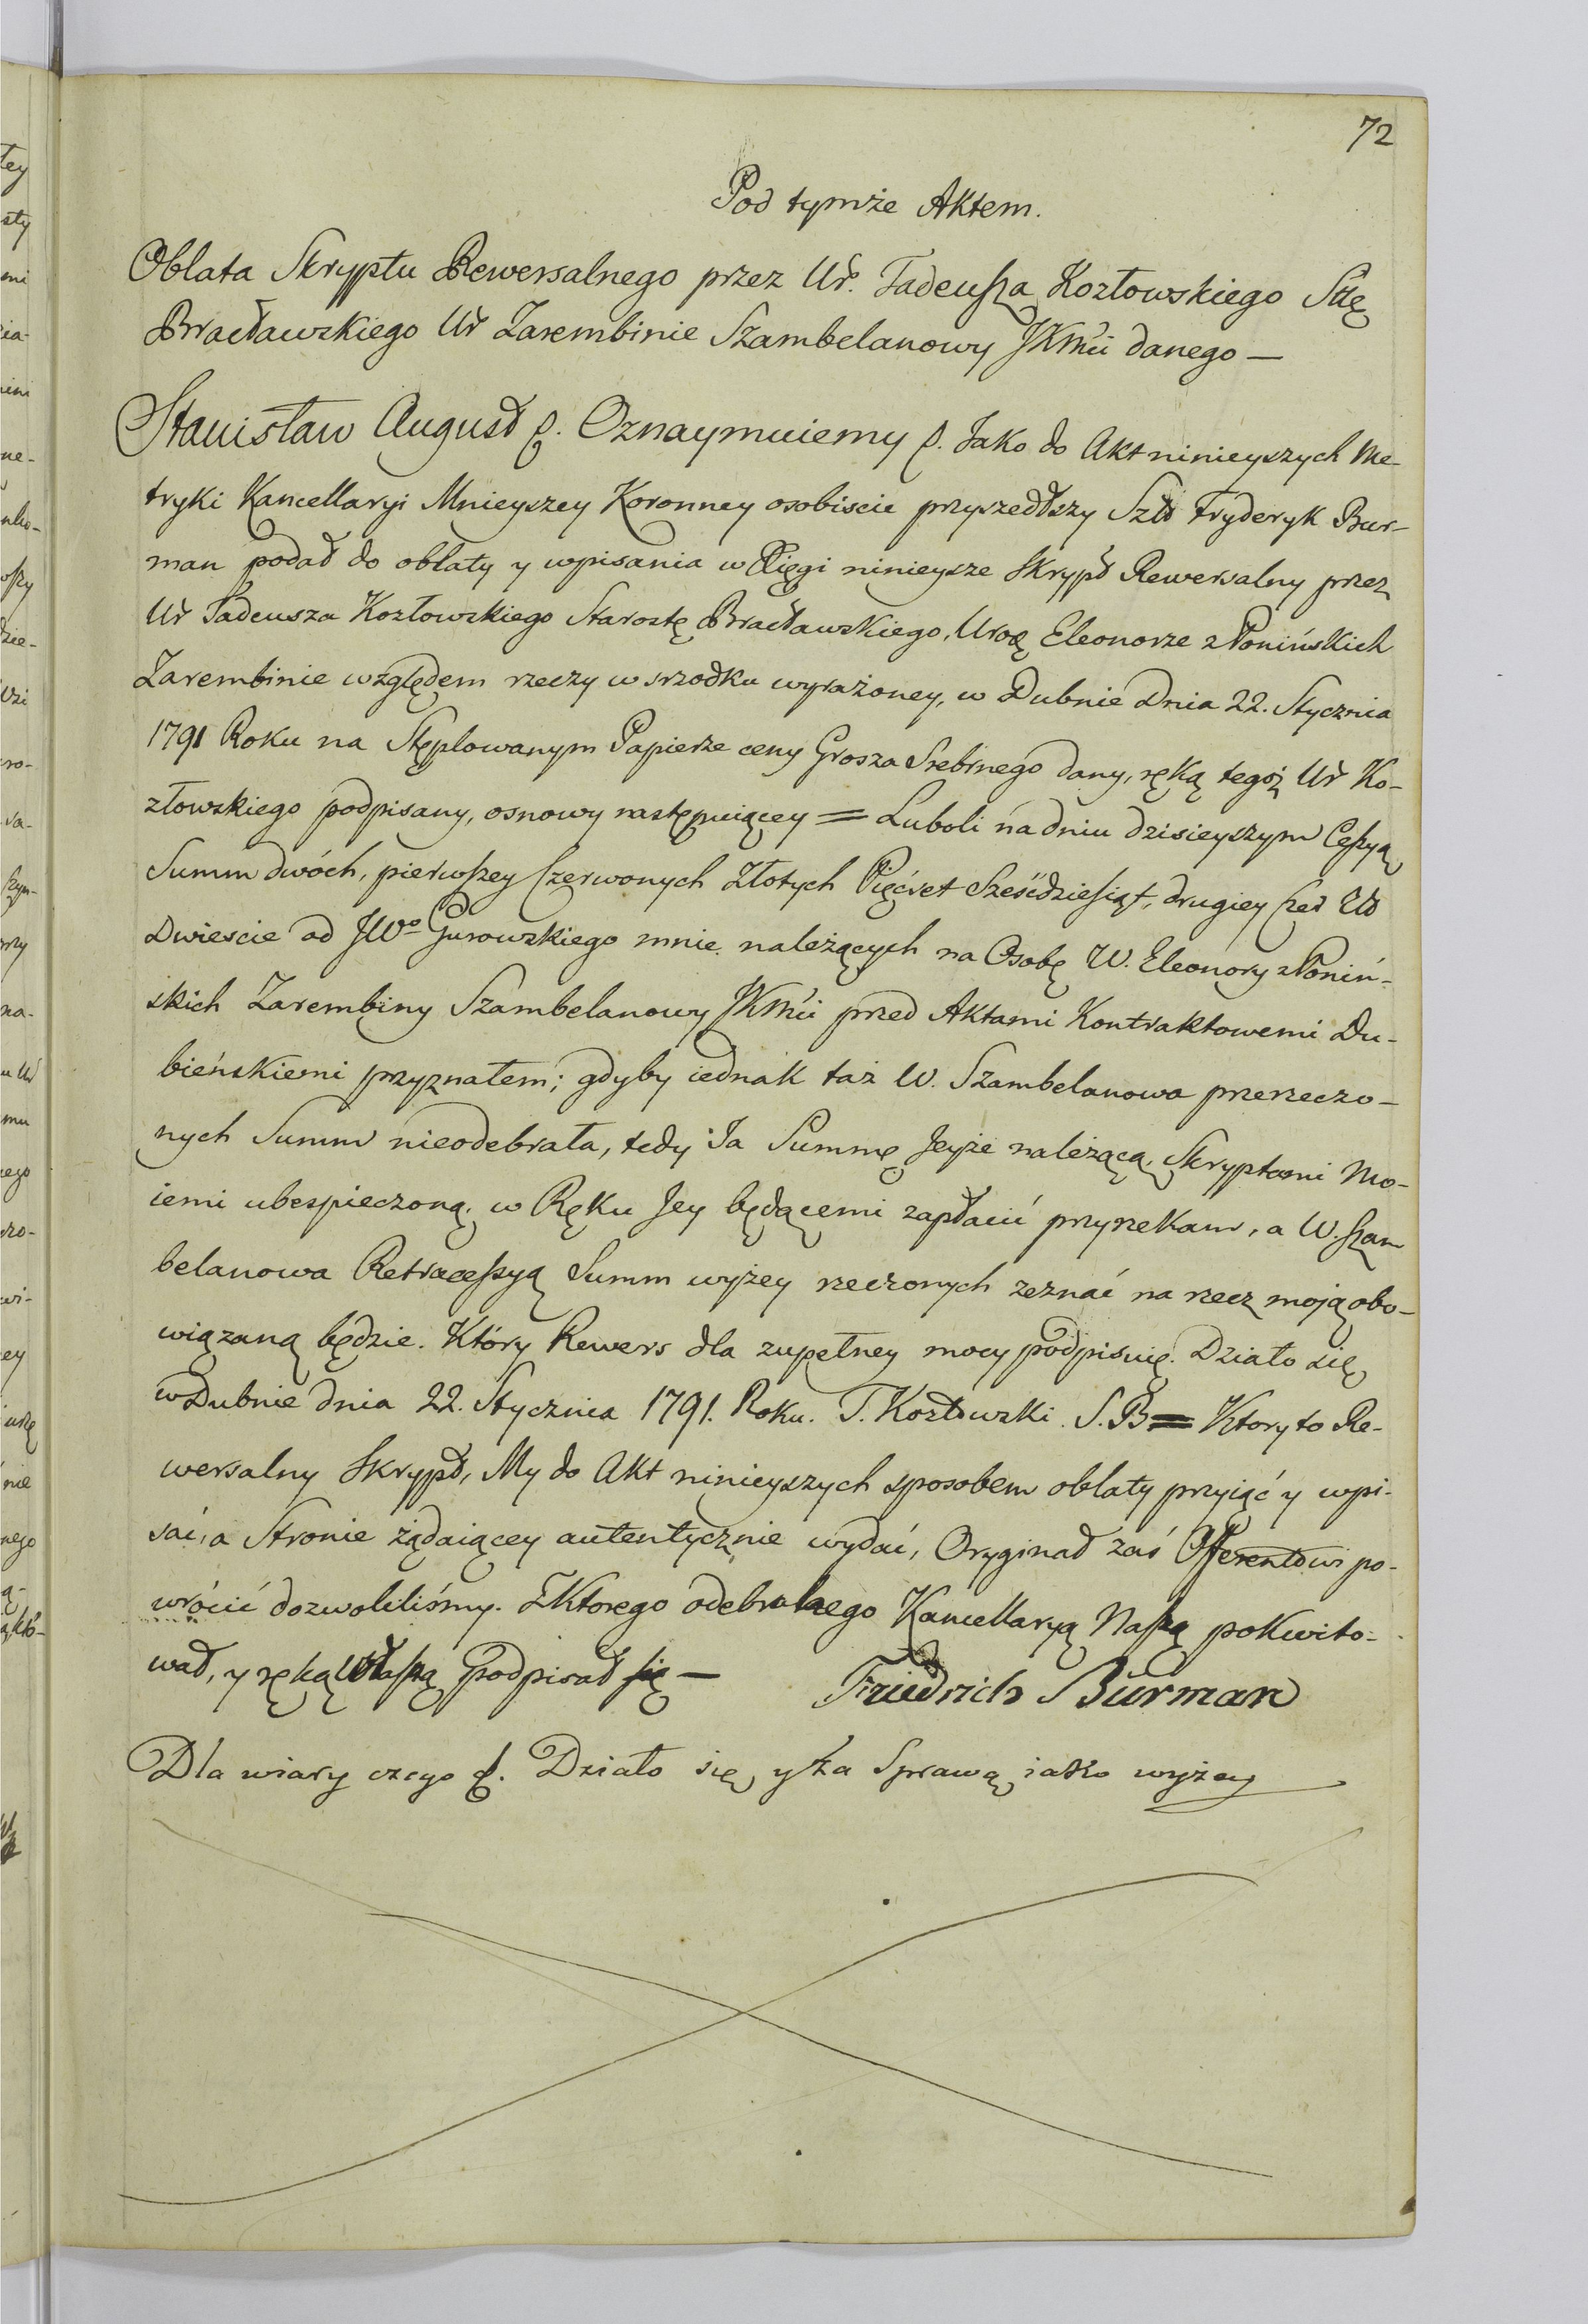 72
Pod tymże Aktem.
Oblata Skryptu Rewersalnego przez Ur. Tadeusza Kozłowskiego Sttę
Bracławskiego Ur Zarembinie Szambelanowy JKMci danego —
Stanisław August p. Oznaymuiemy p. Jako do Akt ninieyszych Me-
tryki Kancellaryi Mnieyszey Koronney osobiscie przyszedłszy Szltt Fryderyk Bur-
man podał do oblaty y wpisania w Xięgi ninieysze Skrypt Rewersalny przez
Ur Tadeusza Kozłowskiego Starostę Bracławskiego, Urog Eleonorze z Ponińskich
Zarembinie względem rzeczy w srzodku wyrażoney, w Dubnie Dnia 22. Stycznia
1791 Roku na Stęplowanym Papierze ceny Grosza Srebrnego dany, ręką tegoż Ur Ko-
złowskiego podpisany, osnowy następuiącey = Luboli na dniu dzisieyszym Cessyą
Summ dwóch, pierwszey Czerwonych Złotych Pięćset Sześćdziesiąt, drugiey Czer Zło
Dwiescie od JWo Gurowskiego mnie należących na Osobę W. Eleonory z Poniń-
skich Zarembiny Szambelanowy JKMci przed Aktami Kontraktowemi Du-
bieńskiemi przyznałem; gdyby iednak taż W. Szambelanowa przerzeczo-
nych Summ nieodebrała, tedy Ja Summę Jeyże należącą, Skryptami Mo-
iemi ubespieczoną, w Ręku Jey będącemi zapłacić przyrzekam, a W. Szam
belanowa Retrocessyą Summ wyżey rzeczonych zeznać na rzecz moją obo-
wiązaną będzie. Który Rewers dla zupełney mocy podpisuię. Działo się
w Dubnie dnia 22. Stycznia 1791. Roku. T. Kozłowski. S. B = Ktory to Re-
wersalny Skrypt, My do Akt ninieyszych sposobem oblaty przyiąć y wpi-
sać, a Stronie żądaiącey autentycznie wydać, Oryginał zaś Offerentowi po-
wrócić dozwoliliśmy. Z Ktorego odebranego Kancellaryą Naszą pokwito-
wał, y ręką Własną podpisał się —
Friedrich Burman
Dla wiary czego p. Działo się y Za Sprawą iako wyżey